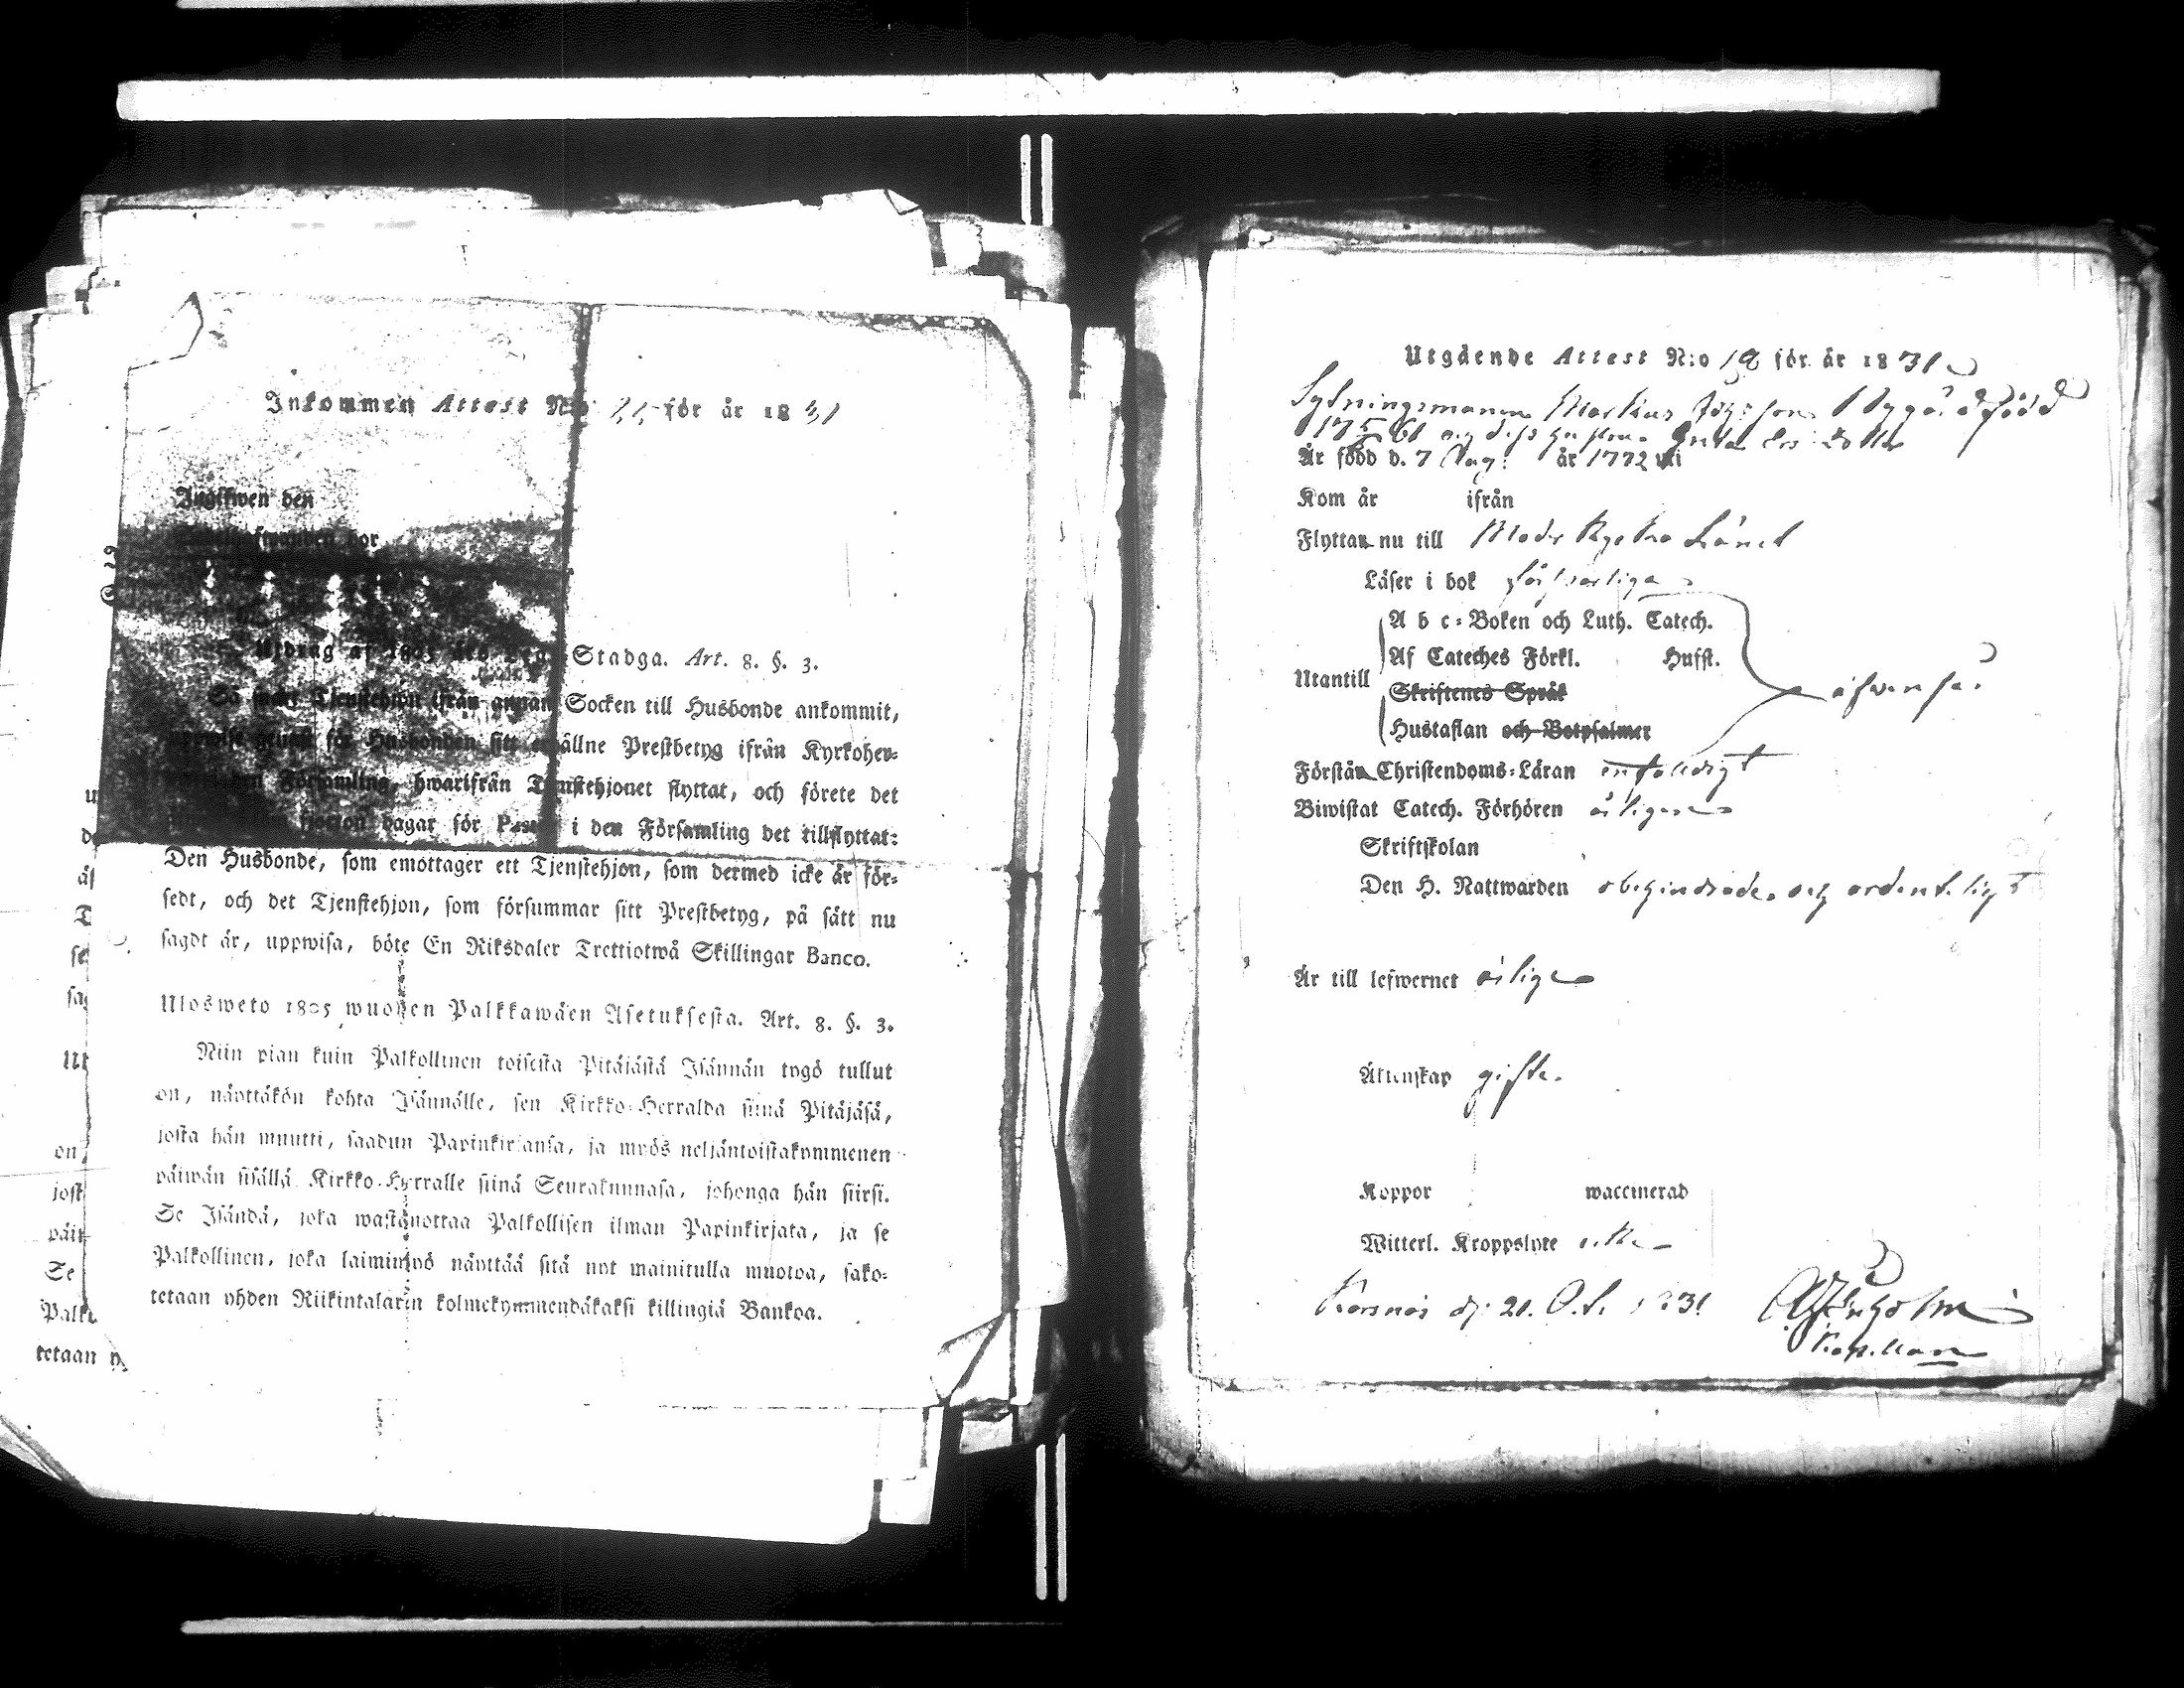 Inkommen Attest N:o 22 för år 1831
Ingifwen den
bor
Utdrag af 1805 års Lego-Stadga. Art. 8. §. 3.
Så snart Tjenstehjon ifrån annan Socken till Husbonde ankommit,
uppwise genast för Husbonden sitt erhållne Prestbetyg ifrån Kyrkoher-
den Församling, hwarifrån Tjenstehjonet flyttat, och förete det
fjorton dagar för Pastor i den Församling det tillflyttat:
Den Husbonde, som emottager ett Tjenstehjon, som dermed icke är för-
sedt, och det Tjenstehjon, som försummar sitt Prestbetyg, på sätt nu
sagdt är, uppwisa, böte En Riksdaler Trettiotwå Skillingar Banco.
Ulosweto 1805 wuoden Palkkawäen Asetuksesta. Art. 8. §. 3.
Niin pian kuin Palkollinen toisesta Pitäjästä Isännän tygö tullut
on, näyttäkön kohta Isännälle, sen Kirkko-Herralda siinä Pitäjäsä,
josta hän muutti, saadun Papinkirjansa, ja myös neljäntoistakymmenen
päiwän sisällä Kirkko-Herralle siinä Seurakunnasa, johonga hän siirsi.
Se Isändä, joka wastanottaa Palkollisen ilman Papinkirjata, ja se
Palkollinen, joka laiminlyö näyttää sitä nyt mainitulla muotoa, sako-
tetaan yhden Riikintalarin kolmekymmendäkaksi killingiä Bankoa.
Utgående Attest N:o 18 för år 1831
Sytningsmannen Mattias född
17 61 och dess hustru Greta Ers Dotter
Är född d. 7 Aug: år 1772 uti
Kom år ifrån
Flyttar nu till Moder Kyrko Länet
Läser i bok försvarliga
A b c-Boken och Luth. Catech.
Af Cateches Förkl. Hufst.
Utantill
Skriftenes Språk
äfvenså.
Hustaflan och Botpsalmer
Förstår Christendoms-Läran enfaldigt
Biwistat Catech. Förhören årligen
Skriftskolan
Den H. Nattwarden obehindrade och ordentligt
Är till lefwernet ärlige
Äktenskap gifte.
Koppor waccinerad
Witterl. Kroppslyte
Korsnäs d: 21. Oct. 1831
Kapellan